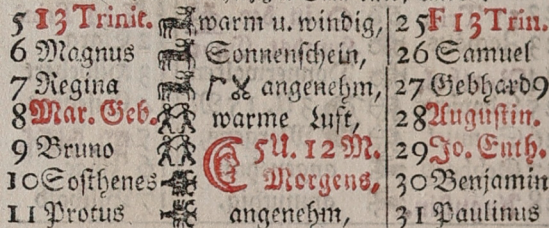 5 13 Trinit. warm u. windig, 25 F 13 Trin.
6 Magnus Sonnenschein, 26 Samuel
7 Regina angenehm, 27 Gebhard9
8 Mar. Geb. warme Luft, 28 Augustin.
9 Bruno 5 U. 12 M. 29 Jo. Enth.
10 Sosthenes Morgens, 30 Benjamin
11 Protus angenehm, 31 Paulinus